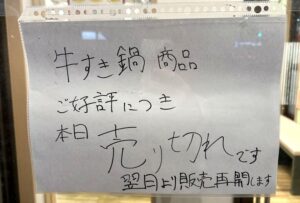 牛すき鍋 商品
ご好評につき
本日 売り切れです
翌日より販売再開します